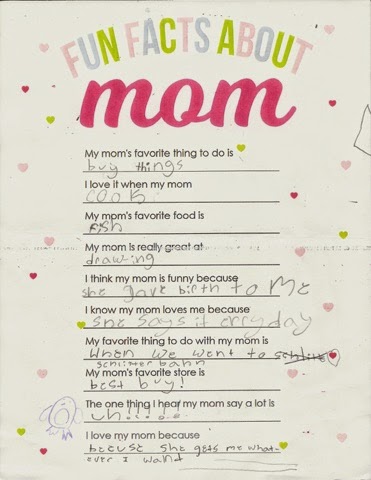 FUN FACTS ABOUT
mom
My mom's favorite thing to do is
buy things
I love it when my mom
cook
My mom's favorite food is
fish
My mom is really great at
drawing
I think my mom is funny because
she gave birth to me
I know my mom loves me because
she says it erryday
My favorite thing to do with my mom is
When we went to schlite
schlitter bahn
My mom's favorite store is
best buy!
The one thing I hear my mom say a lot is
uh!!!...
I love my mom because
becuse she gets me what-
ever I want